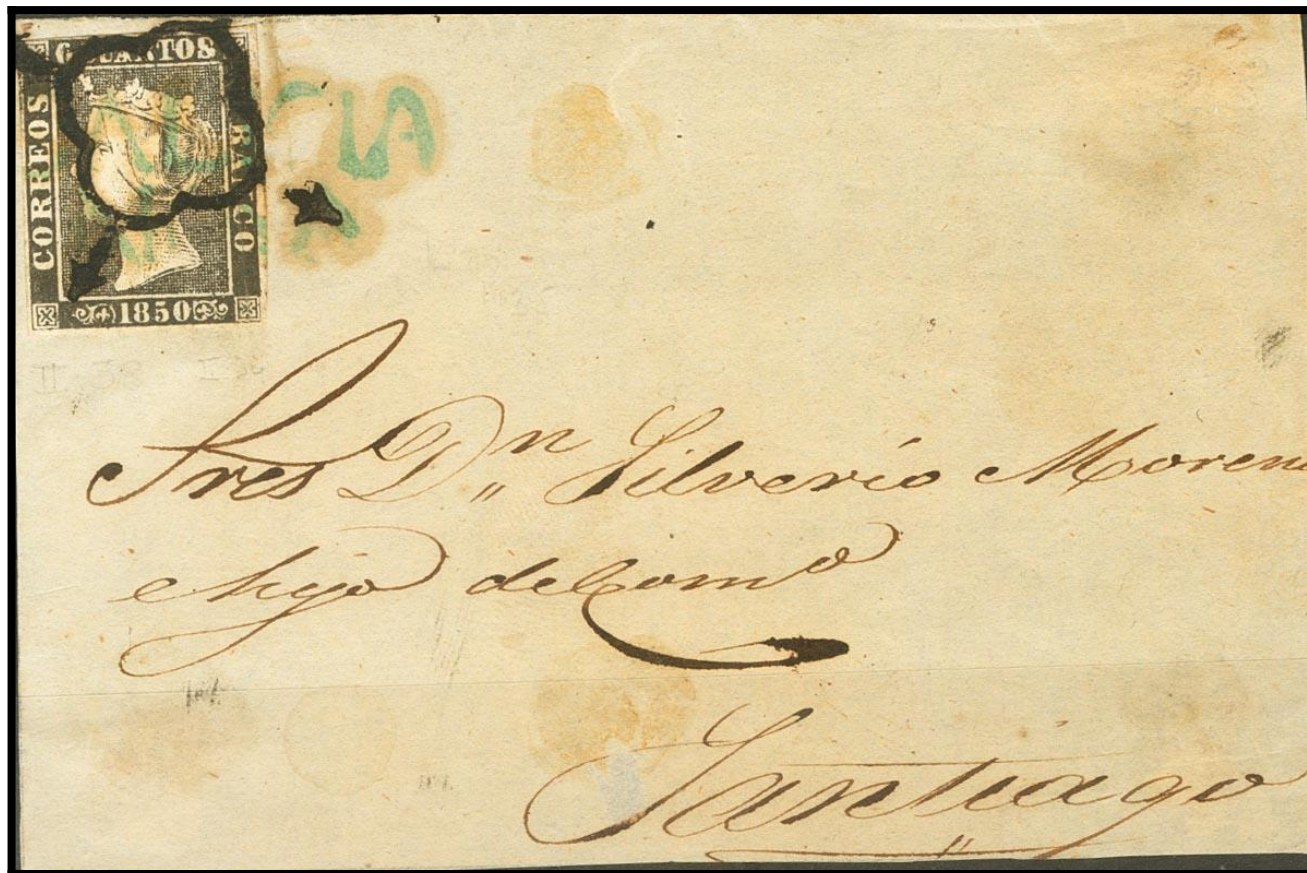 6 CUANTOS
CORREOS
1850
Sres Dn Silverio Moreno
e hijo del Como
Santiago